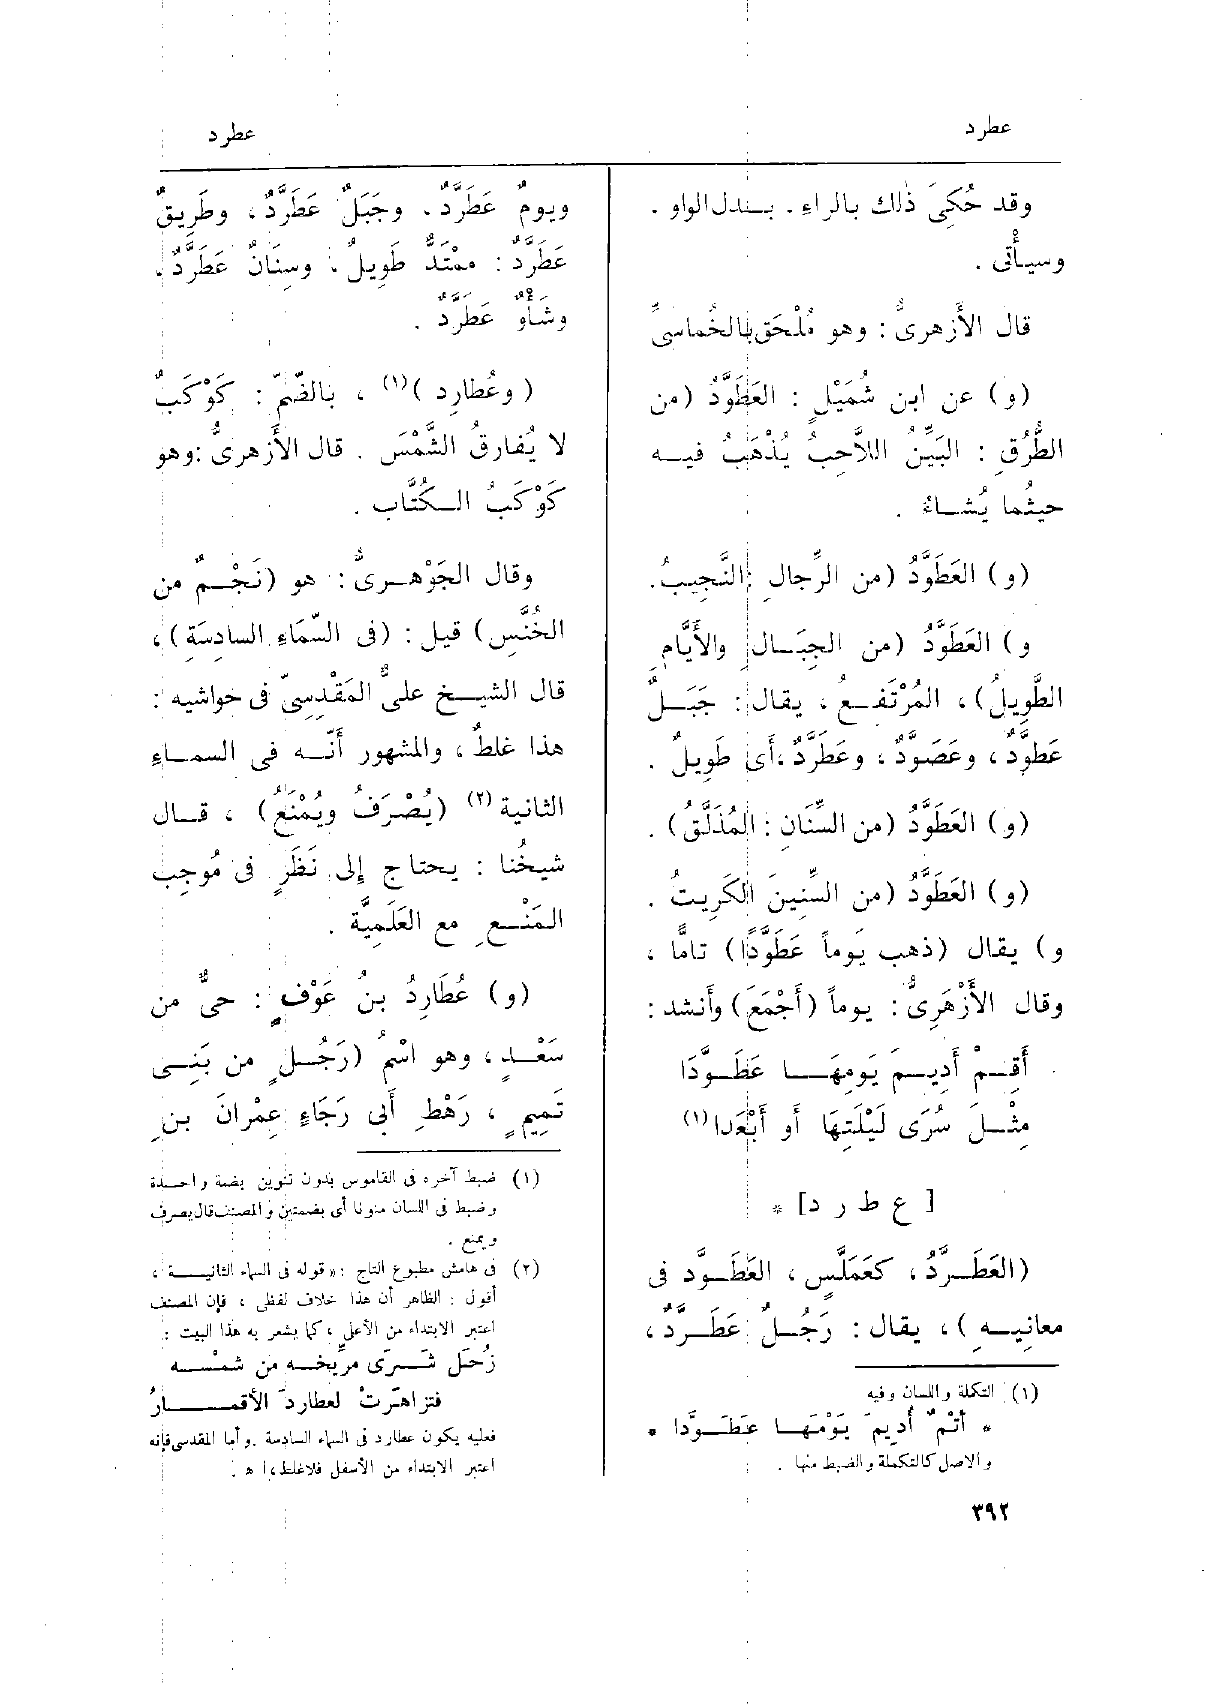 عطرد
عطرد
وقد حُكِىَ ذٰلك بالراءِ. بــدل الواو .
وسيأْتى .
قال الأَزهرىُّ : وهو مُلْحَق بالخُماسىِّ
(و) عن ابن شُمَيْلٍ : العَطَوَّدُ (من
الطُّرُقِ : البَيِّنُ اللاَّحِبُ يُذْهَبُ فيــه
حيثُما يُشــاءُ .
(و) العَطَوَّدُ (من الرِّجالِ : النَّجِيبُ.
و) العَطَوَّدُ (من الجِبَــالِ والأَيَّامِ
الطَّوِيلُ) ، المُرْتَفــعُ ، يقال : جَبَــلٌ
عَطَوَّدٌ ، وعَصَوَّدٌ ، وعَطَرَّدٌ ،أَى طَوِيلٌ .
(و) العَطَوَّدُ (من السِّنَانِ : المُذَلَّقُ) .
(و) العَطَوَّدُ (من السِّنِينَ الكَرِيتُ .
و) يقال (ذهب يَوماً عَطَوَّدًا) تامًّا ،
وقال الأَزْهَرِىُّ : يوماً (أَجْمَعَ) وأَنشد :
أَقِــمْ أَدِيــمَ يَومِهَــا عَطَــوَّدَا
مِثْــلَ سُرَى لَيْلَتِهَا أو أَبْعَدَا(١)
[ ع ط ر د] *
(العَطَــرَّدُ ، كعَمَلَّسٍ ، العَطَــوَّد فى
معانِيــهِ ) ، يقال : رَجُــلٌ عَطَــرَّدٌ ،
(١) التكملة واللسان وفيه
* أَتْمٌ أُدِيمَ يَوْمَهَــا عَطَــوَّدا *
والاصل كالتكملة والضبط منها .
٣٩٢
ويومٌ عَطَرَّدٌ. وجَبَلٌ عَطَرَّدٌ ، وطَرِيقٌ
عَطَرَّدٌ : ممْتَدٌّ طَوِيلٌ ، وسِنَانٌ عَطَرَّدٌ ،
وشَأْوٌ عَطَرَّدٌ .
( وعُطارِد )(١) ، بالضّمّ : كَوْكَبٌ
لا يُفارِقُ الشَّمْسَ . قال الأَزهرىُّ :وهو
كَوْكَبُ الــكُتَّابِ .
وقال الجَوْهــرىُّ : هو (نَجْــمٌ من
الخُنَّس) قيل : (فى السّمَاءِ السادِسَةِ) ،
قال الشيــخ علىٌّ المَقْدِسِىّ فى حواشيه :
هذا غلطٌ ، والمشهور أَنّــه فى السمــاءِ
الثانية (٢) (يُصْرَفُ ويُمْنَعُ) ، قــال
شيخُنا : يحتاج إِلى نَظَرٍ فى مُوجِب
المَنْــعِ مع العَلَمِيَّة .
(و) عُطَارِدُ بنُ عَوْفٍ : حىٌّ من
سَعْــدٍ ، وهو اسْمُ (رَجُــلٍ من بَنِــى
تَمِيمٍ ، رَهْطِ أَبى رَجَاءٍ عِمْرانَ بنِ
(١) ضبط آخره فى القاموس بدون تنوين بضمة واحــدة
وضبط فى اللسان منونا أى بضمتين والمصنف قال يصرف
ويمنع .
(٢) فى هامش مطبوع التاج : « قوله فى السماء الثانيــة ،
أقول : الظاهر أن هذا خلاف لفظى ، فإن المصنف
اعتبر الابتداء من الأعلى ، كما يشعر به هذا البيت :
زُحَل شَــرَى مرِّيخــه من شمْســه
فتزاهَرَتْ لعطاردَ الأقمــارُ
فعليه يكون عطارد فى السماء السادسة . وأما المقدسى فإنه
اعتبر الابتداء من الأسفل فلاغلط ، ا هـ .